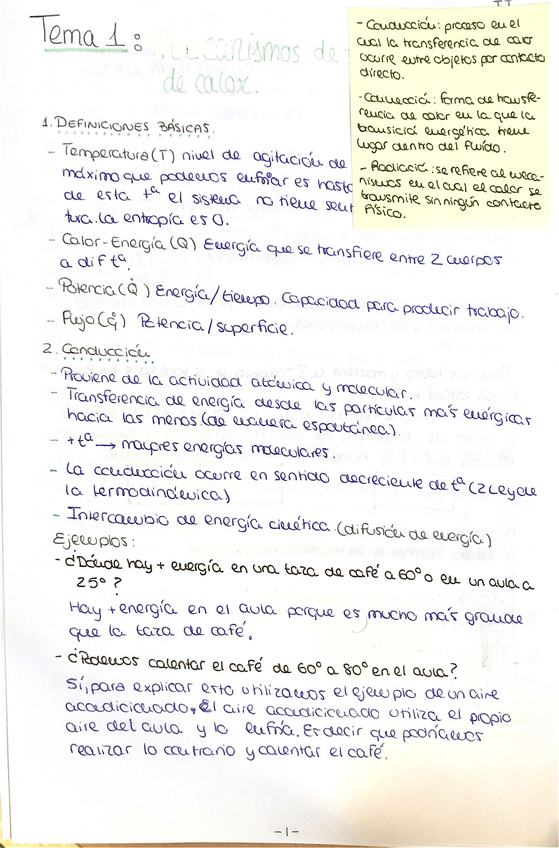 Tema 1:
canismos de
de calor.
- Conducción: proceso en el
cual la transferencia de calor
ocurre entre objetos por contacto
directo.
- Convección: forma de transfe-
rencia de calor en la que la
transición energética tiene
lugar dentro del fluido.
- Radiación: se refiere al meca-
nismos en el cual el calor se
transmite sin ningún contacto
físico.
1. DEFINICIONES BÁSICAS.
- Temperatura (T) nivel de agitación de
máximo que podemos enfriar es hasta
de esta tª el sistema no tiene
tura. La entropía es 0.
- Calor-Energía (Q) Energía que se transfiere entre 2 cuerpos
a dif tª.
- Potencia (Q̇) Energía/tiempo. Capacidad para producir trabajo.
- Flujo (q̇) Potencia/superficie.
2. Conducción.
- Proviene de la actividad atómica y molecular.
- Transferencia de energía desde las partículas más enérgicas
hacia las menos (de manera espontánea).
- + tª → mayores energías moleculares.
- La conducción ocurre en sentido decreciente de tª (2 Ley de
la termodinámica)
- Intercambio de energía cinética. (difusión de energía)
Ejemplos:
- ¿Dónde hay + energía en una taza de café a 60° o en un aula a
25°?
Hay + energía en el aula porque es mucho más grande
que la taza de café.
- ¿Podemos calentar el café de 60° a 80° en el aula?
Sí, para explicar esto utilizamos el ejemplo de un aire
acondicionado, El aire acondicionado utiliza el propio
aire del aula y lo enfría. Es decir que podríamos
realizar lo contrario y calentar el café.
-1-